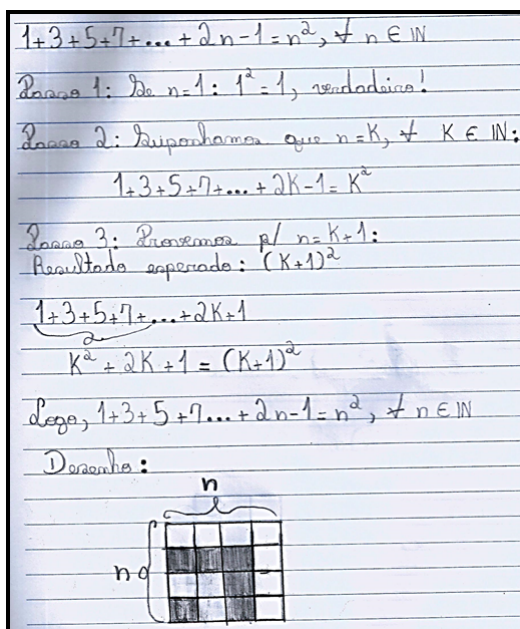 1+3+5+7+...+2n-1=n², ∀ n ∈ ℕ
Passo 1: Se n=1: 1²=1, verdadeiro!
Passo 2: Suponhamos que n=K, ∀ K ∈ ℕ:
1+3+5+7+...+2K-1=K²
Passo 3: Provemos p/ n=K+1:
Resultado esperado: (K+1)²
1+3+5+7+...+2K+1
K²+2K+1=(K+1)²
Logo, 1+3+5+7...+2n-1=n², ∀ n ∈ ℕ
Desenho:
n
n